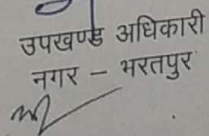 उपखण्ड अधिकारी
नगर – भरतपुर